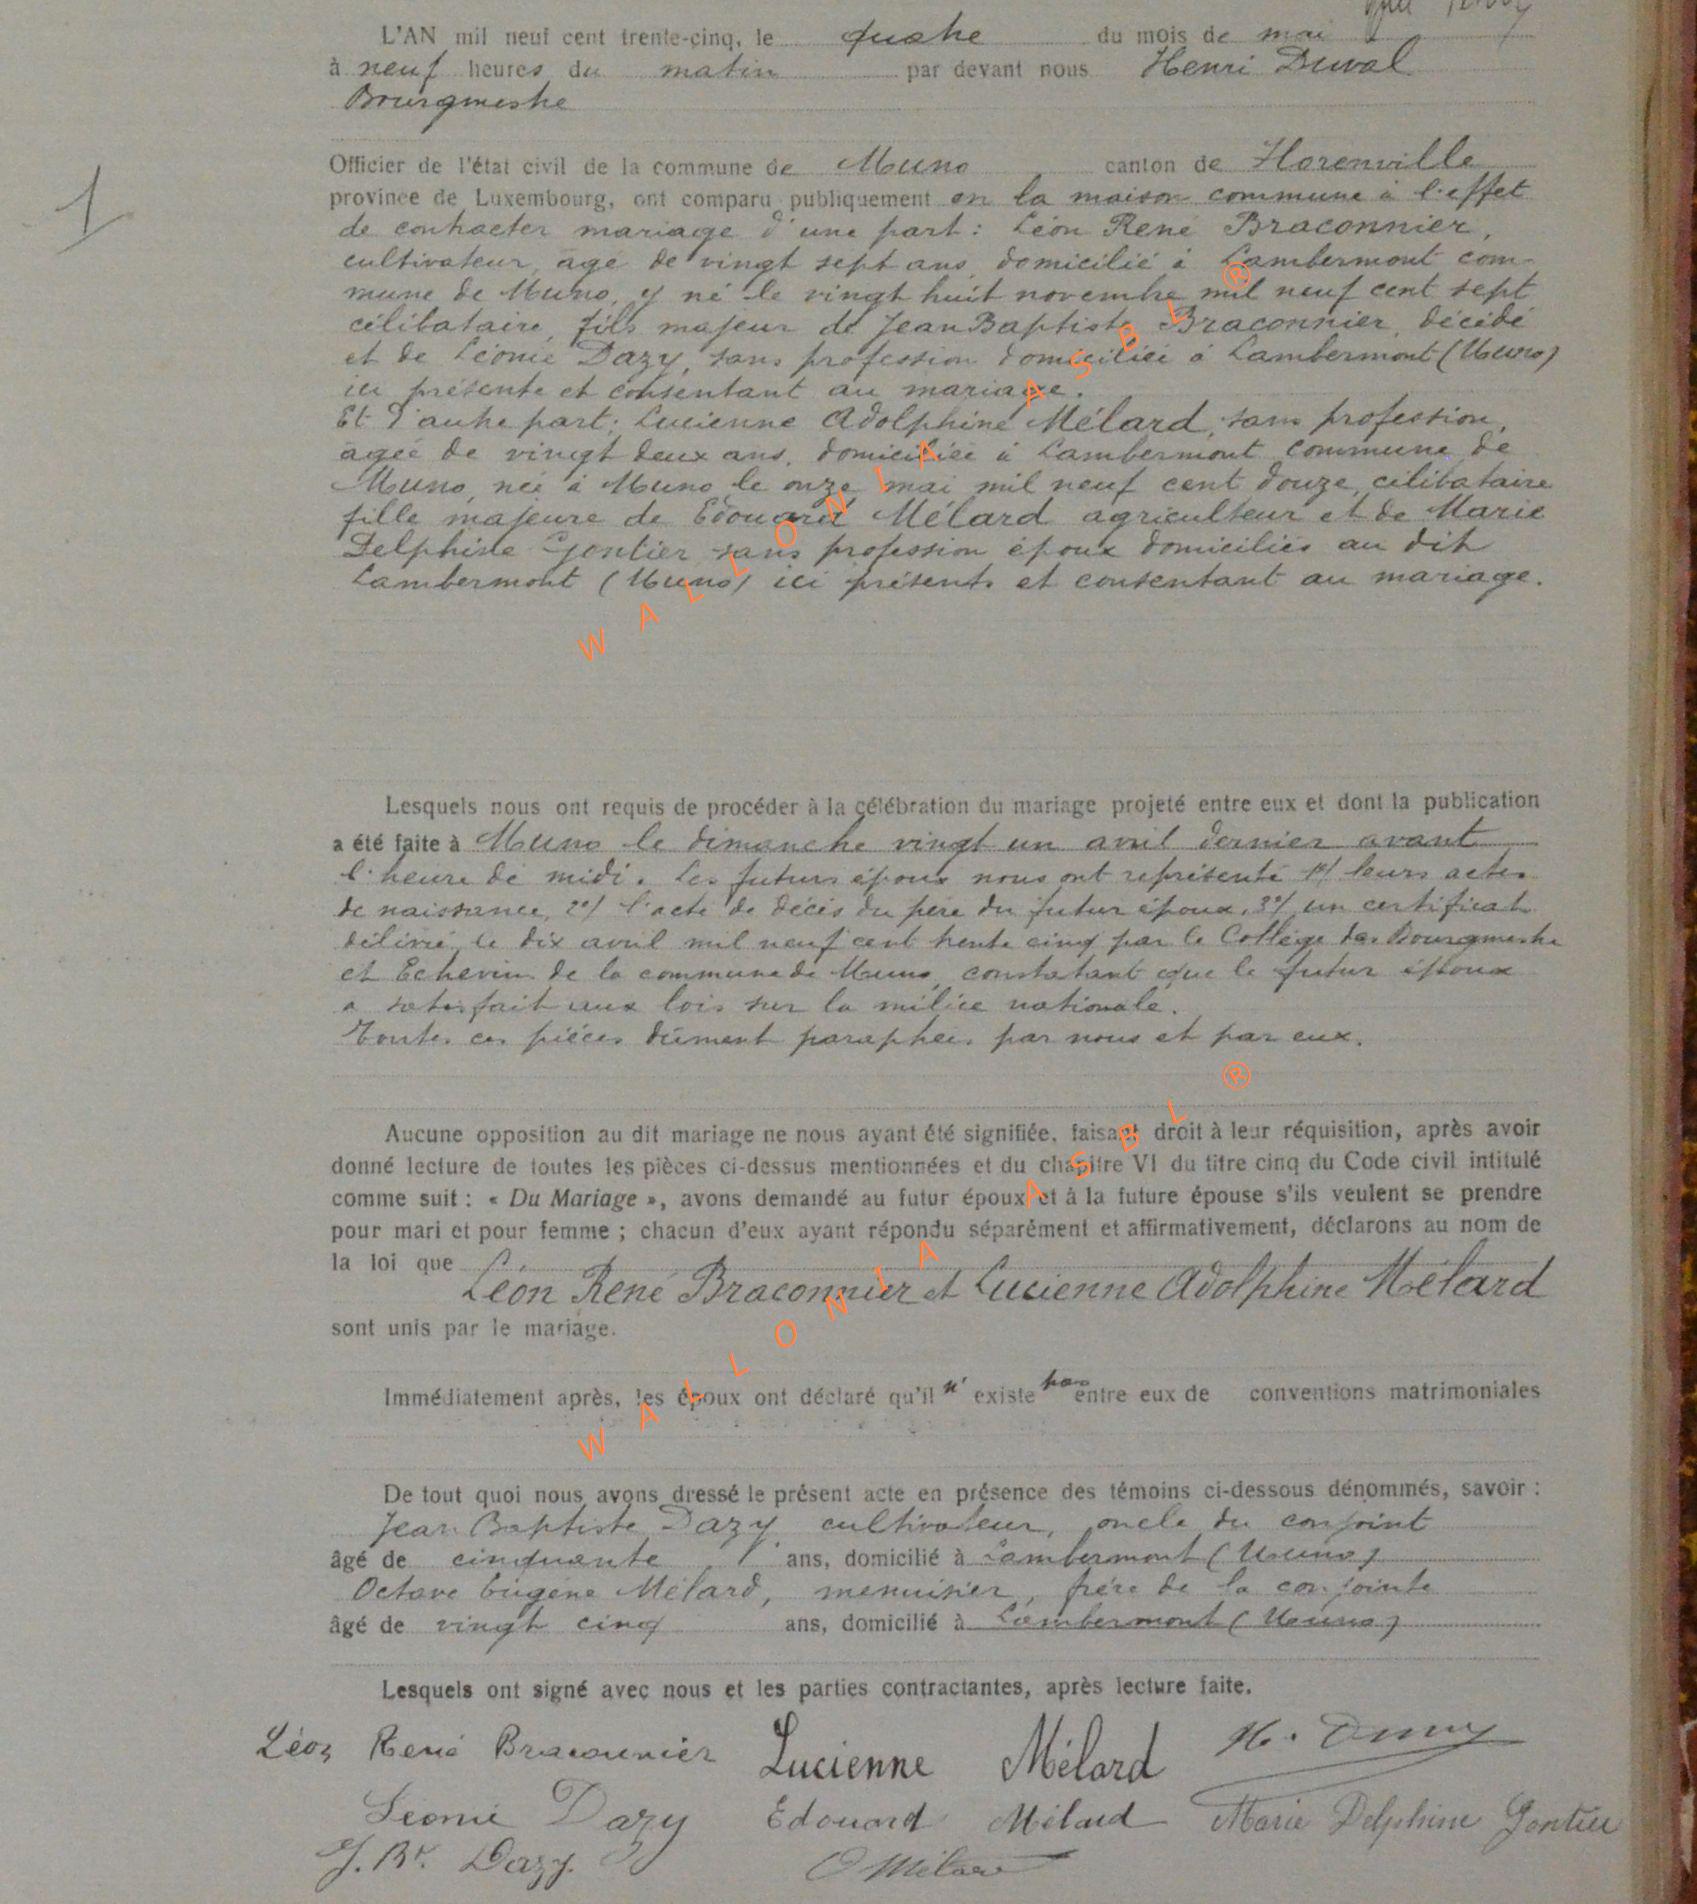 L'AN mil neuf cent trente-cinq, le quatre du mois de mai
à neuf heures du matin par devant nous Henri Duval
Bourgmestre
Officier de l'état civil de la commune de Muno canton de Florenville
province de Luxembourg, ont comparu publiquement en la maison commune à l'effet
1
de contracter mariage d'une part : Léon René Braconnier,
cultivateur, âgé de vingt sept ans, domicilié à Lambermont com-
mune de Muno, y né le vingt huit novembre mil neuf cent sept
célibataire, fils majeur de Jean Baptiste Braconnier, décédé
et de Léonie Dazy, sans profession domiciliée à Lambermont (Muno)
ici présente et consentant au mariage.
Et d'autre part : Lucienne Adolphine Mélard, sans profession,
âgée de vingt deux ans, domiciliée à Lambermont commune de
Muno, née à Muno le onze mai mil neuf cent douze, célibataire
fille majeure de Edouard Mélard agriculteur et de Marie
Delphine Gontier sans profession époux domiciliés au dit
Lambermont (Muno) ici présents et consentant au mariage.
WALLONIA ASBL ®
Lesquels nous ont requis de procéder à la célébration du mariage projeté entre eux et dont la publication
a été faite à Muno le dimanche vingt un avril dernier avant
l'heure de midi. Les futurs époux nous ont représenté 1°/ leurs actes
de naissance, 2°/ l'acte de décès du père du futur époux, 3°/ un certificat
délivré le dix avril mil neuf cent trente cinq par le Collège des Bourgmestre
et Echevins de la commune de Muno, constatant que le futur époux
a satisfait aux lois sur la milice nationale.
Toutes ces pièces dûment paraphées par nous et par eux.
Aucune opposition au dit mariage ne nous ayant été signifiée, faisant droit à leur réquisition, après avoir
donné lecture de toutes les pièces ci-dessus mentionnées et du chapitre VI du titre cinq du Code civil intitulé
comme suit : « Du Mariage », avons demandé au futur époux et à la future épouse s'ils veulent se prendre
pour mari et pour femme ; chacun d'eux ayant répondu séparément et affirmativement, déclarons au nom de
la loi que Léon René Braconnier et Lucienne Adolphine Mélard
sont unis par le mariage.
Immédiatement après, les époux ont déclaré qu'il n' existe pas entre eux de conventions matrimoniales
WALLONIA ASBL ®
De tout quoi nous avons dressé le présent acte en présence des témoins ci-dessous dénommés, savoir :
Jean Baptiste Dazy cultivateur, oncle du conjoint
âgé de cinquante ans, domicilié à Lambermont (Muno)
Octave Eugène Mélard, menuisier, frère de la conjointe
âgé de vingt cinq ans, domicilié à Lambermont (Muno)
Lesquels ont signé avec nous et les parties contractantes, après lecture faite.
Léon René Braconnier Lucienne Mélard H.
Léonie Dazy Edouard Mélard Marie Delphine Gontier
J. Bt. Dazy. O Mélard